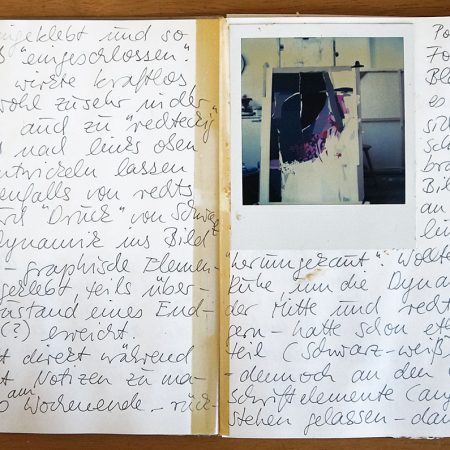 eingeklebt und so
"eingeschlossen".
wirkte kraftlos
wohl zu sehr in der
und zu "redteckig"
nach links oben
entwickeln lassen
enfalls von rechts
wird "Druck" von schwarz
Dynamik ins Bild
- graphische Elemen-
geklebt, teils über-
zustand eines End-
(?) erreicht.
direkt während
Notizen zu ma-
am Wochenende - rück-
Po
Fo
Bl
es
sic
sch
bra
Bil
an
lin
"herumgekaut". Wollte
Kühe, um die Dyna
der Mitte und recht
ern - hatte schon et
teil (Schwarz-weiß
- dennoch an den
Schriftelemente (ang
stehen gelassen - dan